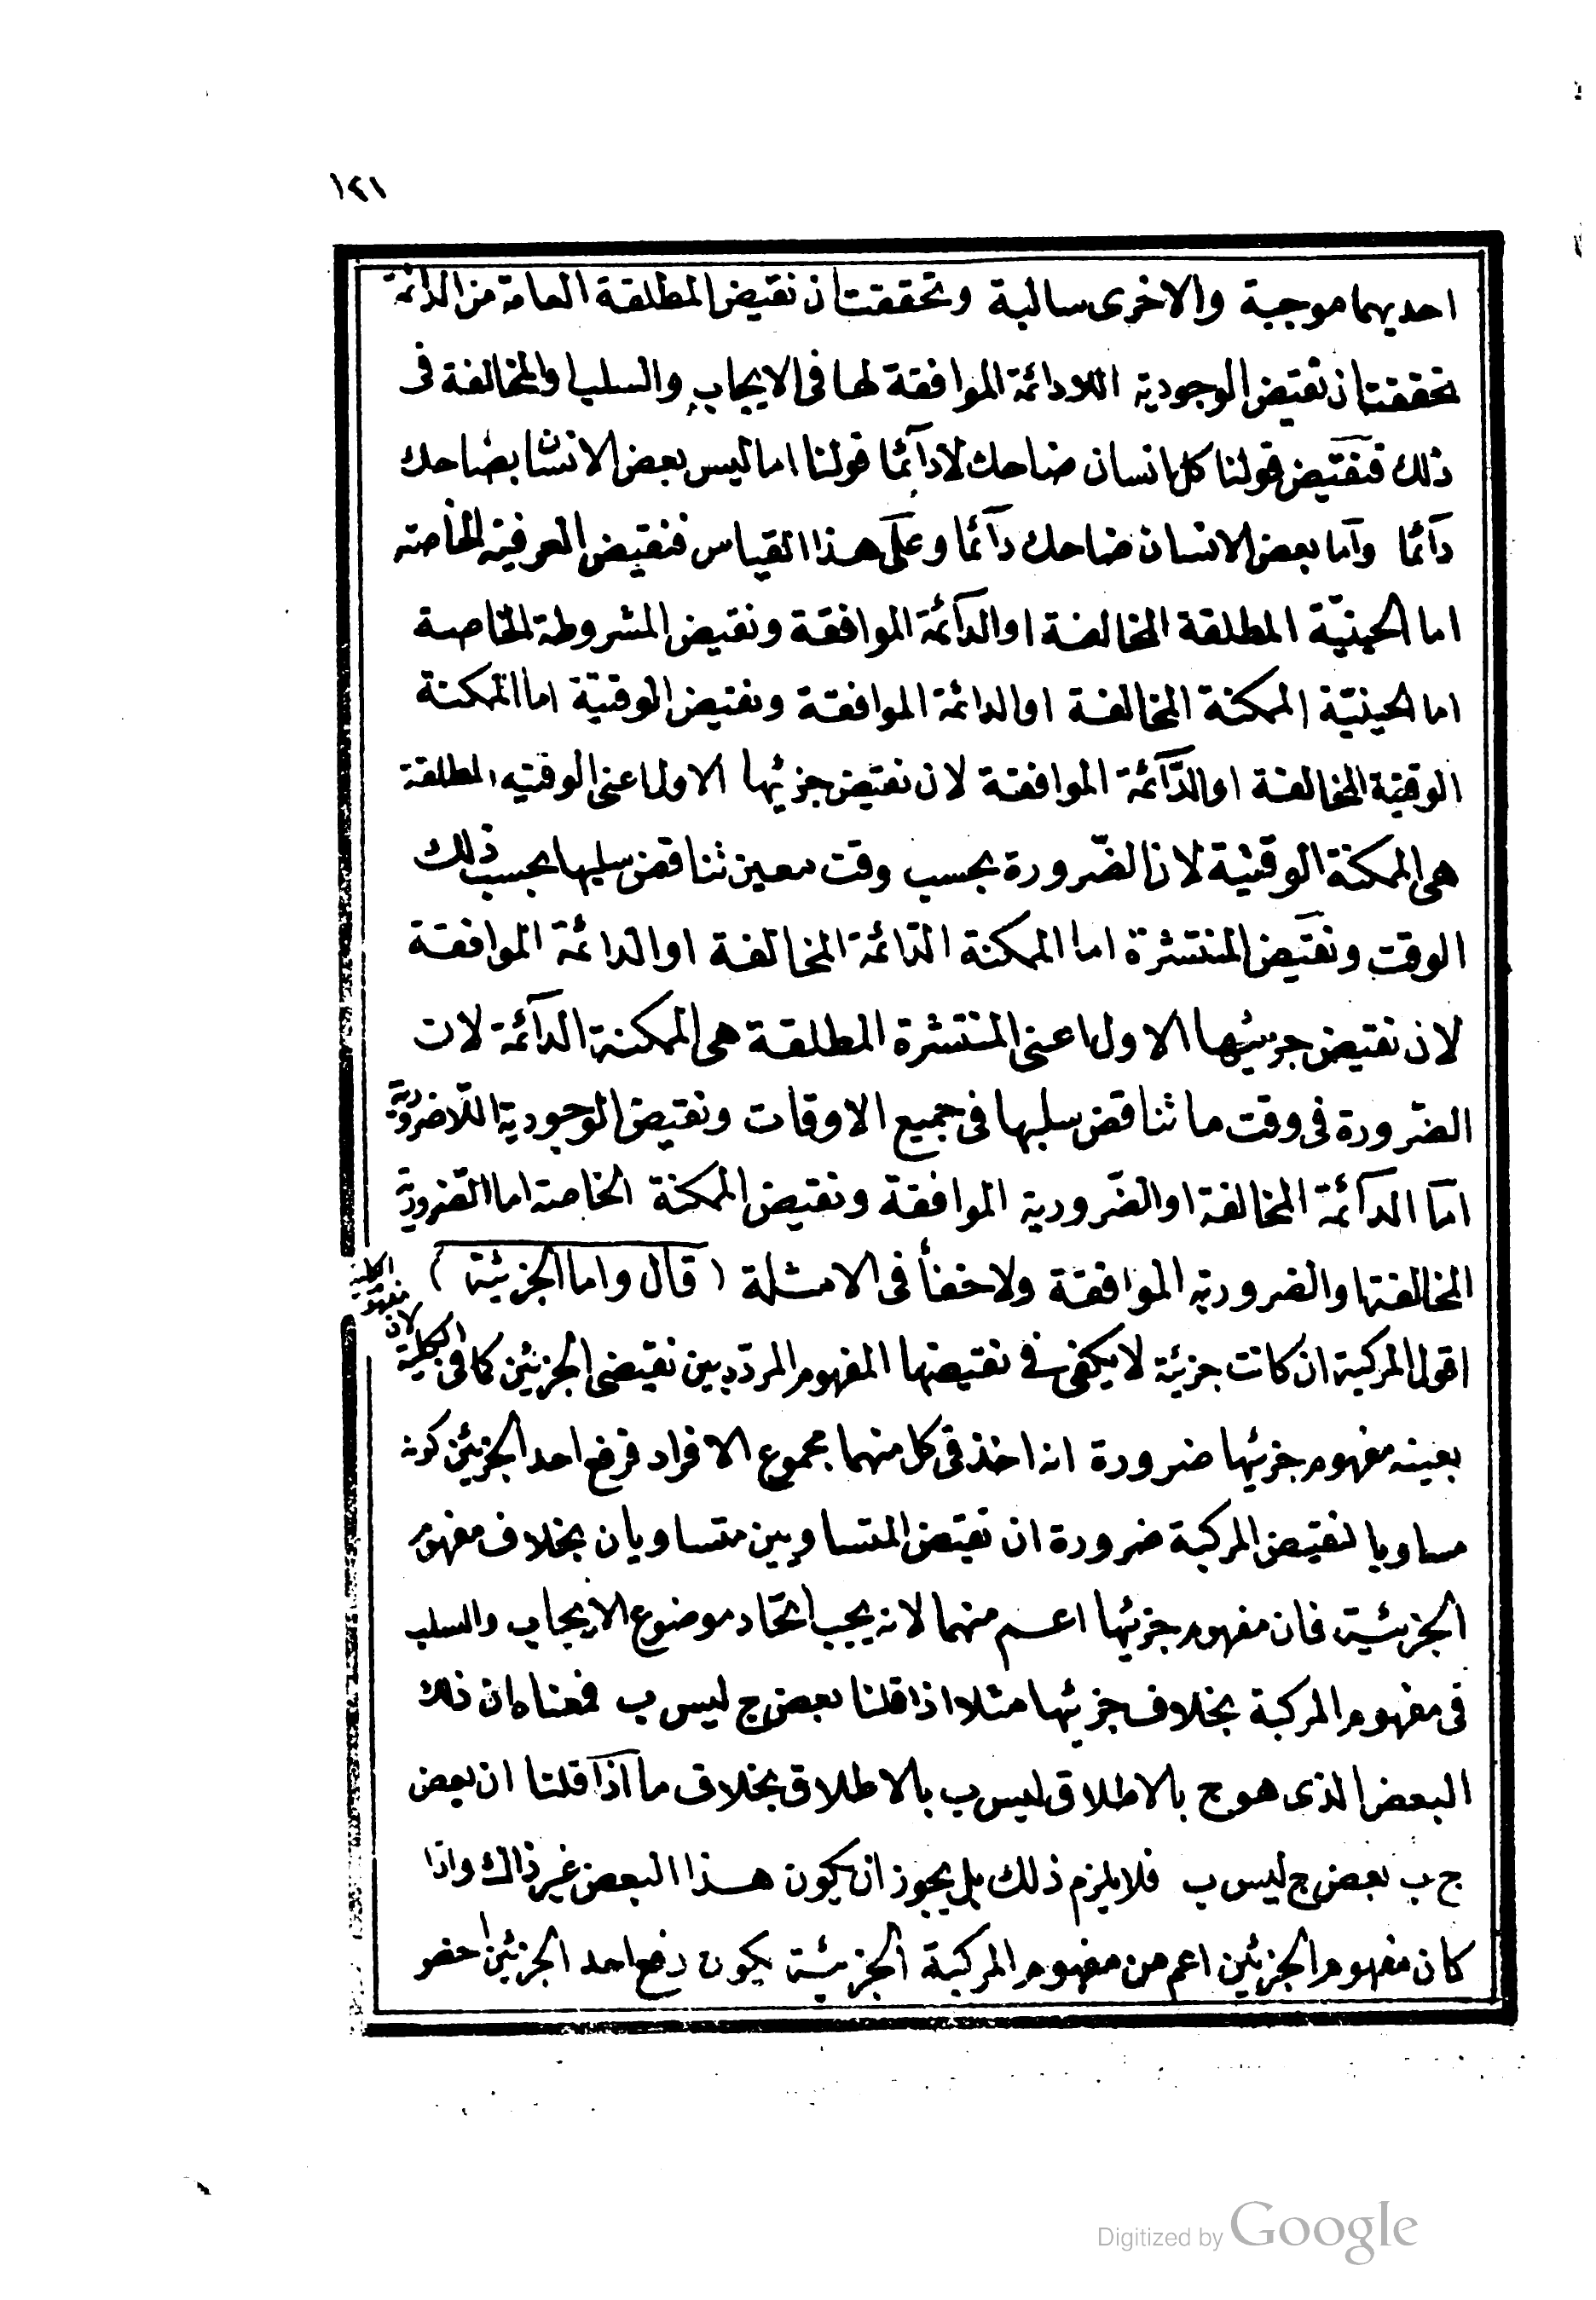 ١٢١
احديهما موجبة والاخرى سالبة وتحققت ان نقيض المطلقة العامة من الدائمة
تحققت ان نقيض الوجودية اللادائمة الموافقة لها فى الايجاب والسلب او المخالفة فى
ذلك فنقيض قولنا كل انسان ضاحك لا دآئما قولنا اما ليس بعض الانسان بضاحك
دآئما وآما بعض الانسان ضاحك دآئما وعلى هذا القياس فنقيض العرفية الخاصة
اما الحينيّة المطلقة المخالفة او الدآئمة الموافقة ونقيض المشروطة الخاصة
اما الحينيّة الممكنة المخالفة او الدائمة الموافقة ونقيض الوقتيّة اما الممكنة
الوقتية المخالفة او الدّآئمة الموافقة لان نقيض جزئها الاول اعنى الوقتيه المطلقة
هى الممكنة الوقتية لان الضّرورة بحسب وقت معين تناقض سلبها بحسب ذلك
الوقت ونقيض المنتشرة اما الممكنة الدائمة المخالفة او الدائمة الموافقة
لان نقيض جزئها الاول اعنى المنتشرة المطلقة هى الممكنة الدآئمة لان
الضّرورة فى وقت ما تناقض سلبها فى جميع الاوقات ونقيض الوجودية اللّاضرورية
امّا الدآئمة المخالفة او الضّرورية الموافقة ونقيض الممكنة الخاصة اما الضّرورية
المخالفة او الضرورية الموافقة ولا خفأ فى الامثلة (قال واما الجزئية)
اقول المركبة ان كانت جزئية لا يكفى فى نقيضها المفهوم المردّد بين نقيضى الجزئين كما فى الكلية
لان مفهوم الكلية
بعينه مفهوم جزئيها ضرورة انه اخذ فى كل منهما مجموع الافراد فرفع احد الجزئين كونه
مساويا لنقيض المركبة ضرورة ان نقيض المتساويين متساويان بخلاف مفهوم
الجزئية فان مفهوم جزئيها اعم منهما لانه يجب اتّحاد موضوع الايجاب والسلب
فى مفهوم المركبة بخلاف جزئيها مثلا اذا قلنا بعض ج ليس ب فمعناه ان ذلك
البعض الذى هو ج بالاطلاق ليس ب بالاطلاق بخلاف ما اذا قلنا ان بعض
ج ب بعض ج ليس ب فلا يلزم ذلك بل يجوز ان يكون هذا البعض غير ذاك واذا
كان مفهوم الجزئين اعم من مفهوم المركبة الجزئية يكون رفع احد الجزئين اخص
Digitized by Google